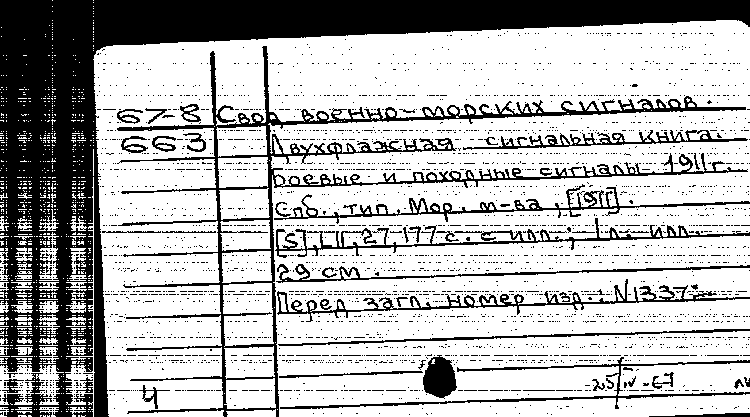 67-8 Свод военно-морских сигналов.
663 Двухфлажная сигнальная книга.
Боевые и походные сигналы 1911 г.
Спб., тип. Мор. м-ва, [1911].
[5], LII, 27, 177 с. с илл.; 1 л. илл.
29 см.
Перед загл. номер изд.: N1337.
4
25/IV-67